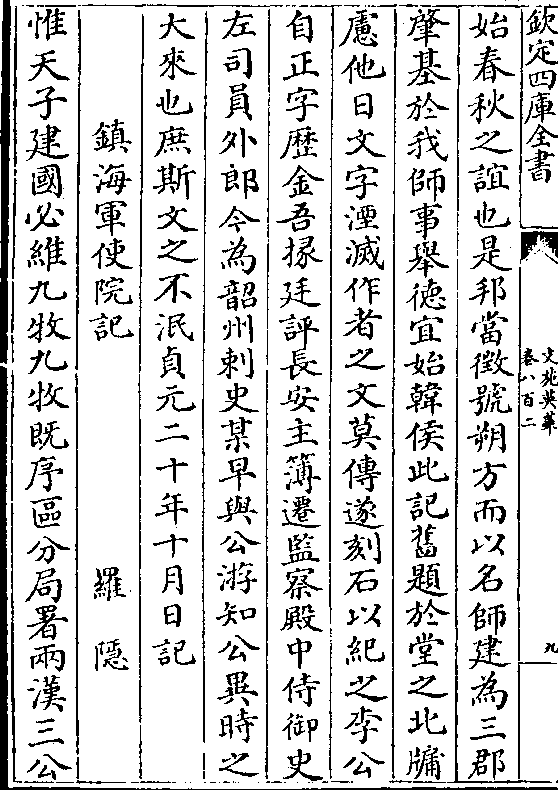 欽定四庫全書
文苑英華
卷八百二
九
始春秋之誼也是邦當徵號朔方而以名師建為三郡
肇基於我師事舉徳宜始韓侯此記舊題於堂之北牗
慮他日文字湮滅作者之文莫傳遂刻石以紀之李公
自正字歴金吾掾廷評長安主簿遷監察殿中侍御史
左司員外郎今為韶州刺史某早與公游知公異時之
大來也庶斯文之不泯貞元二十年十月日記
鎮海軍使院記 羅隱
惟天子建國必維九牧九牧既序區分局署兩漢三公